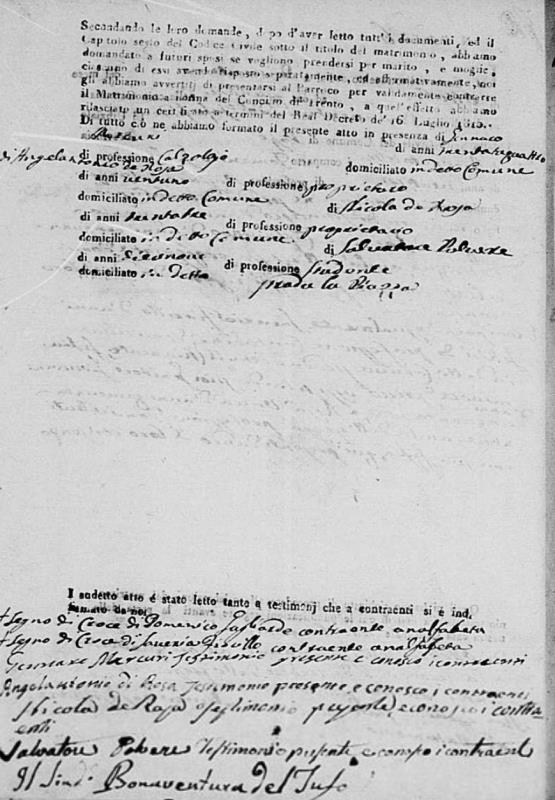 Secondando le loro domande, dopo d'aver letto tutt'i documenti, ed il
Capitolo sesto del Codice Civile sotto il titolo del matrimonio, abbiamo
domandato a futuri sposi se vogliono prendersi per marito, e moglie,
ciascuno di essi avendo risposto separatamente, ed affermativamente, noi
gli abbiamo avvertiti di presentarsi al Parroco per validamente contrarre
il Matrimonio a norma del Concilio di Trento, a quel'effetto abbiamo
rilasciato un certificato a termini del Real Decreto de' 16 Luglio 1815.
Di tutto ciò ne abbiamo formato il presente atto in presenza di Gennaro
Mercuri di anni trentaquattro
di professione Calzolajo domiciliato in detto Comune
di Angelantonio de Rosa
di anni ventuno di professione proprietario
domiciliato in detto Comune di Nicola de Rosa
di anni trentatre di professione proprietario
domiciliato in detto Comune di Salvatore Polvere
di anni di professione Studente
domiciliato in detto strada la Piazza
I sudetto atto è stato letto tanto a testimonj che a contraenti si è ind.
firmato da noi
+ Segno di Croce di Domenico contraente analfabeta
+ Segno di Croce di Saveria contraente analfabeta
Gennaro Mercuri testimonio presente e conosco i contraenti
Angelantonio di Rosa testimonio presente e conosco i contraenti
Nicola de Rosa testimonio presente, e conosco i contra
enti
Salvatore Polvere testimonio presente e conosco i contraenti
Il Sind.º Bonaventura del Tufo